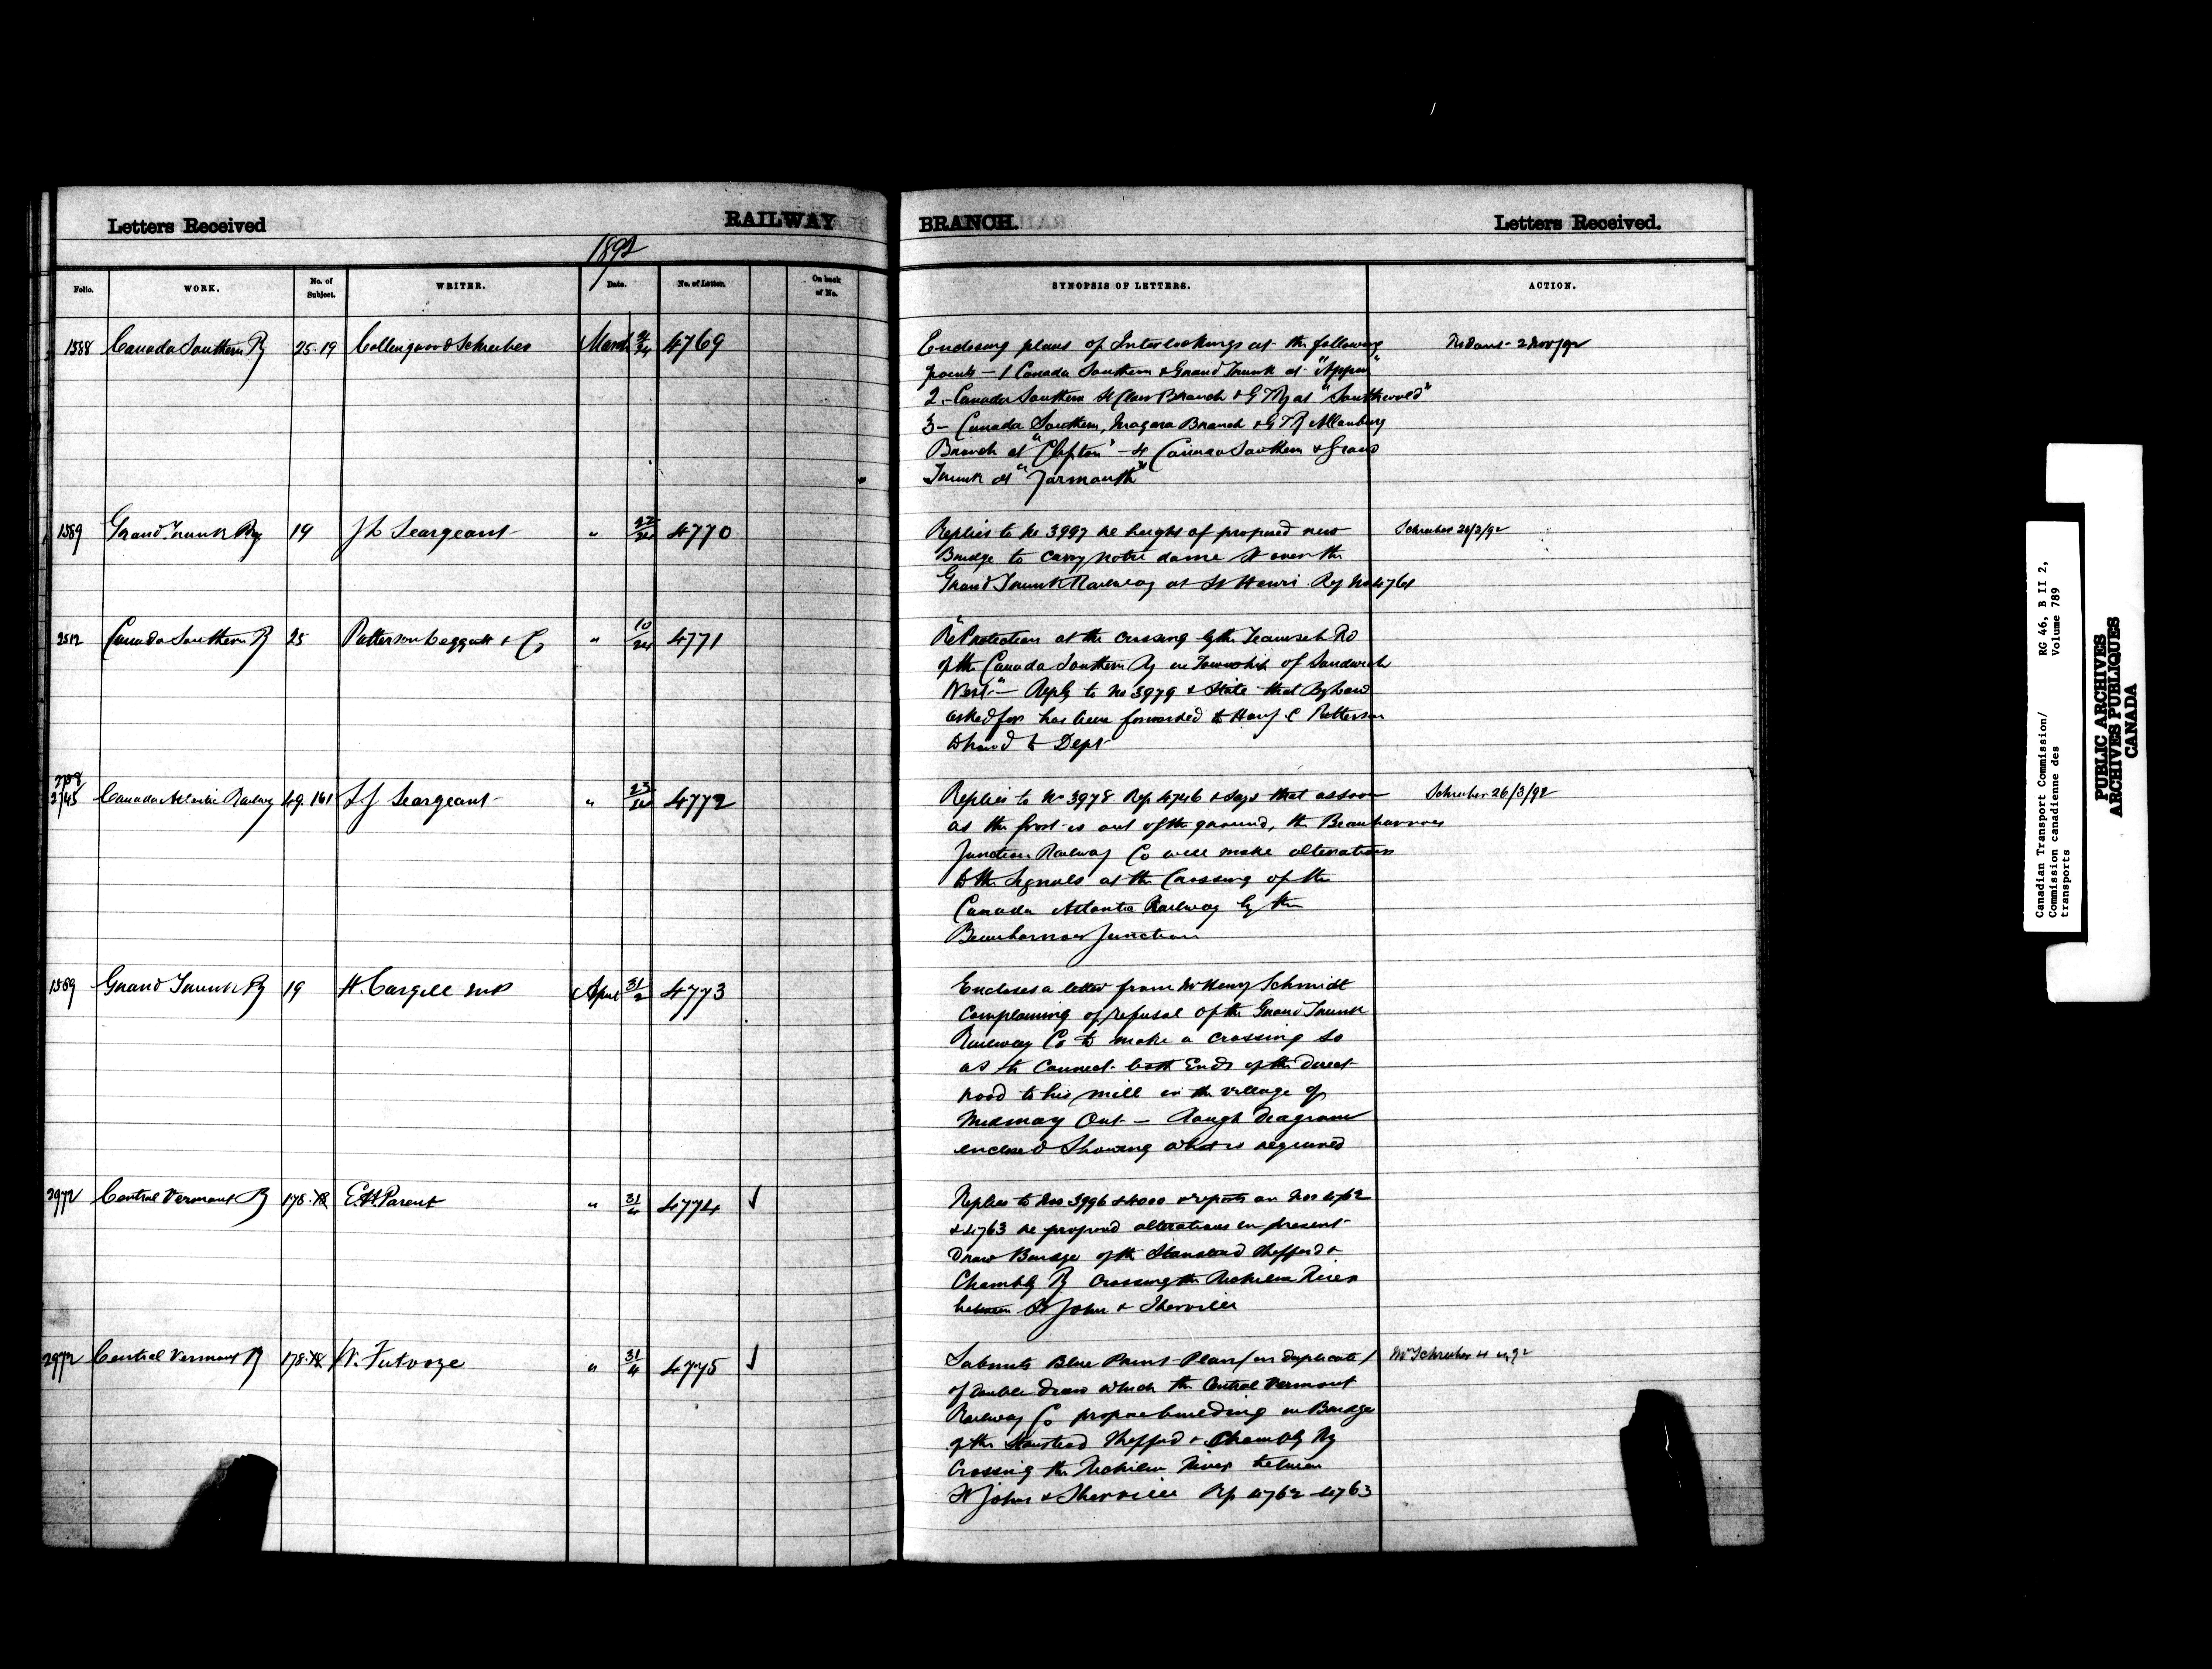 Letters Received RAILWAY BRANCH. Letters Received.
1892
Folio. WORK. No. of Subject. WRITER. Date. No. of Letter. On back of No. SYNOPSIS OF LETTERS. ACTION.
1588 Canada Southern Ry 25-19 Collingwood Schreiber March 21/24 4769
Enclosing plans of Interlockings at the following
points - 1 Canada Southern & Grand Trunk at "Appin"
2 - Canada Southern St Clair Branch & GTRy at "Southwold"
3 - Canada Southern, Niagara Branch & GTR Allanburg
Branch at "Clifton" - 4 Canada Southern & Grand
Trunk at "Yarmouth"
1589 Grand Trunk Ry 19 J L Seargeant " 22/24 4770
Replies to No 3997 re height of proposed new
Bridge to carry Notre dame St over the
Grand Trunk Railway at St Henri Rep No 4761
Schreiber 26/3/92
2512 Canada Southern Ry 25 Patterson Leggatt & Co " 10/24 4771
"Re Protection at the crossing by the Tecumseh Rd
of the Canada Southern Ry in Township of Sandwich
West" - Reply to No 3979 & State that By law
asked for has been forwarded to Hon J. C Patterson
to hand to Dept
2758
2745 Canada Atlantic Railway 49. 161 L J Seargeant " 23/24 4772
Replies to No 3978 Rep 4746 & says that as soon
as the frost is out of the ground, the Beauharnois
Junction Railway Co will make alterations
to the Signals at the Crossing of the
Canada Atlantic Railway by the
Beauharnois Junction
Schreiber 26/3/92
1589 Grand Trunk Ry 19 H. Cargill M.P April 31/2 4773
Encloses a letter from Mr Henry Schmidt
Complaining of refusal of the Grand Trunk
Railway Co to make a crossing so
as to connect both Ends of the direct
road to his mill in the village of
Mildmay Ont - Rough diagram
enclosed Showing what is required
2972 Central Vermont Ry 178. E.H. Parent " 31/4 4774 ✓
Replies to Nos 3996 & 4000 & reports on Nos 4762
& 4763 re proposed alterations in present
Draw Bridge of the Stanstead Shefford &
Chambly Ry Crossing the Richelieu River
between St John & Iberville
2972 Central Vermont Ry 178. W. " 31/4 4775 ✓
Submits Blue Print Plan (in duplicate)
of double draw which the Central Vermont
Railway Co propose building in Bridge
of the Stanstead Shefford & Chambly Ry
Crossing the Richelieu River between
St Johns & Iberville Rep 4762-4763
Mr Schreiber 4 4/92
Canadian Transport Commission/ RG 46, B II 2,
Commission canadienne des Volume 789
transports
PUBLIC ARCHIVES
ARCHIVES PUBLIQUES
CANADA